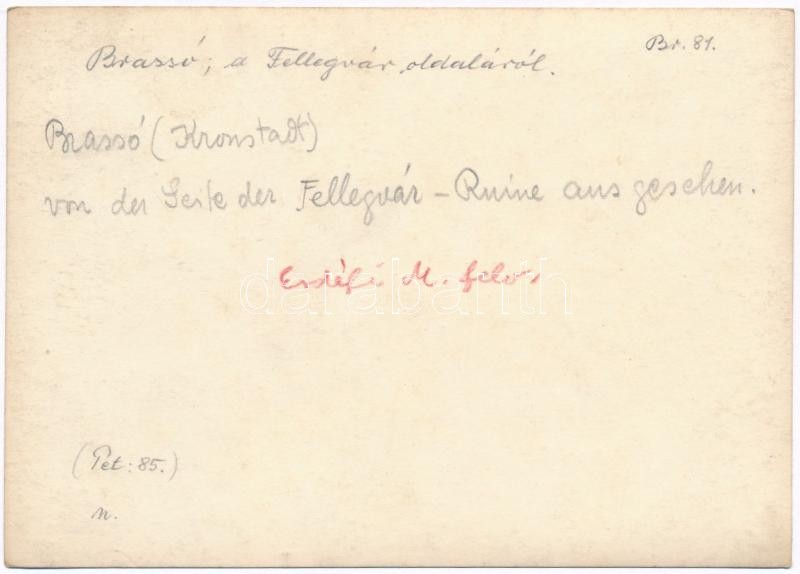 Br. 81.
Brassó; a Fellegvár oldaláról.
Brassó (Kronstadt)
von der Seite der Fellegvár - Ruine aus gesehen.
Erdélyi M. felv.
darabanth
(Pét: 85.)
n.